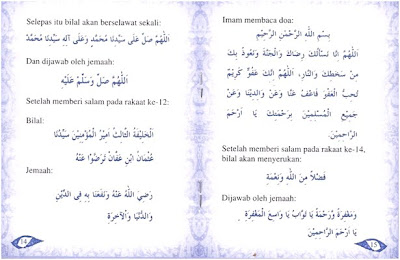 Selepas itu bilal akan berselawat sekali:
اَللّٰهُمَّ صَلِّ عَلَى سَيِّدِنَا مُحَمَّدٍ وَعَلَى آلِهِ سَيِّدِنَا مُحَمَّدٍ
Dan dijawab oleh jemaah:
اَللّٰهُمَّ صَلِّ وَسَلِّمْ عَلَيْهِ
Setelah memberi salam pada rakaat ke-12:
Bilal:
اَلْخَلِيْفَةُ الثَّالِثُ اَمِيْرُ الْمُؤْمِنِيْنَ سَيِّدُنَا
عُثْمَانُ ابْنِ عَفَّانَ تَرَضَّوْا عَنْهُ
Jemaah:
رَضِيَ اللهُ عَنْهُ وَنَفَعَنَا بِهِ فِى الدِّيْنِ
وَالدُّنْيَا وَالْآخِرَةِ
14
Imam membaca doa:
بِسْمِ اللهِ الرَّحْمٰنِ الرَّحِيْمِ
اَللّٰهُمَّ اِنَّا نَسْأَلُكَ رِضَاكَ وَالْجَنَّةَ وَنَعُوْذُ بِكَ
مِنْ سَخَطِكَ وَالنَّارِ، اَللّٰهُمَّ اِنَّكَ عَفُوٌّ كَرِيْمٌ
تُحِبُّ الْعَفْوَ فَاعْفُ عَنَّا وَعَنْ وَالِدِيْنَا وَعَنْ
جَمِيْعِ الْمُسْلِمِيْنَ بِرَحْمَتِكَ يَا اَرْحَمَ
الرَّاحِمِيْنَ
Setelah memberi salam pada rakaat ke-14,
bilal akan menyerukan:
فَضْلًا مِنَ اللهِ وَنِعْمَةً
Dijawab oleh jemaah:
وَمَغْفِرَةً وَرَحْمَةً يَا تَوَّابُ يَا وَاسِعَ الْمَغْفِرَةِ
يَا اَرْحَمَ الرَّاحِمِيْنَ
15